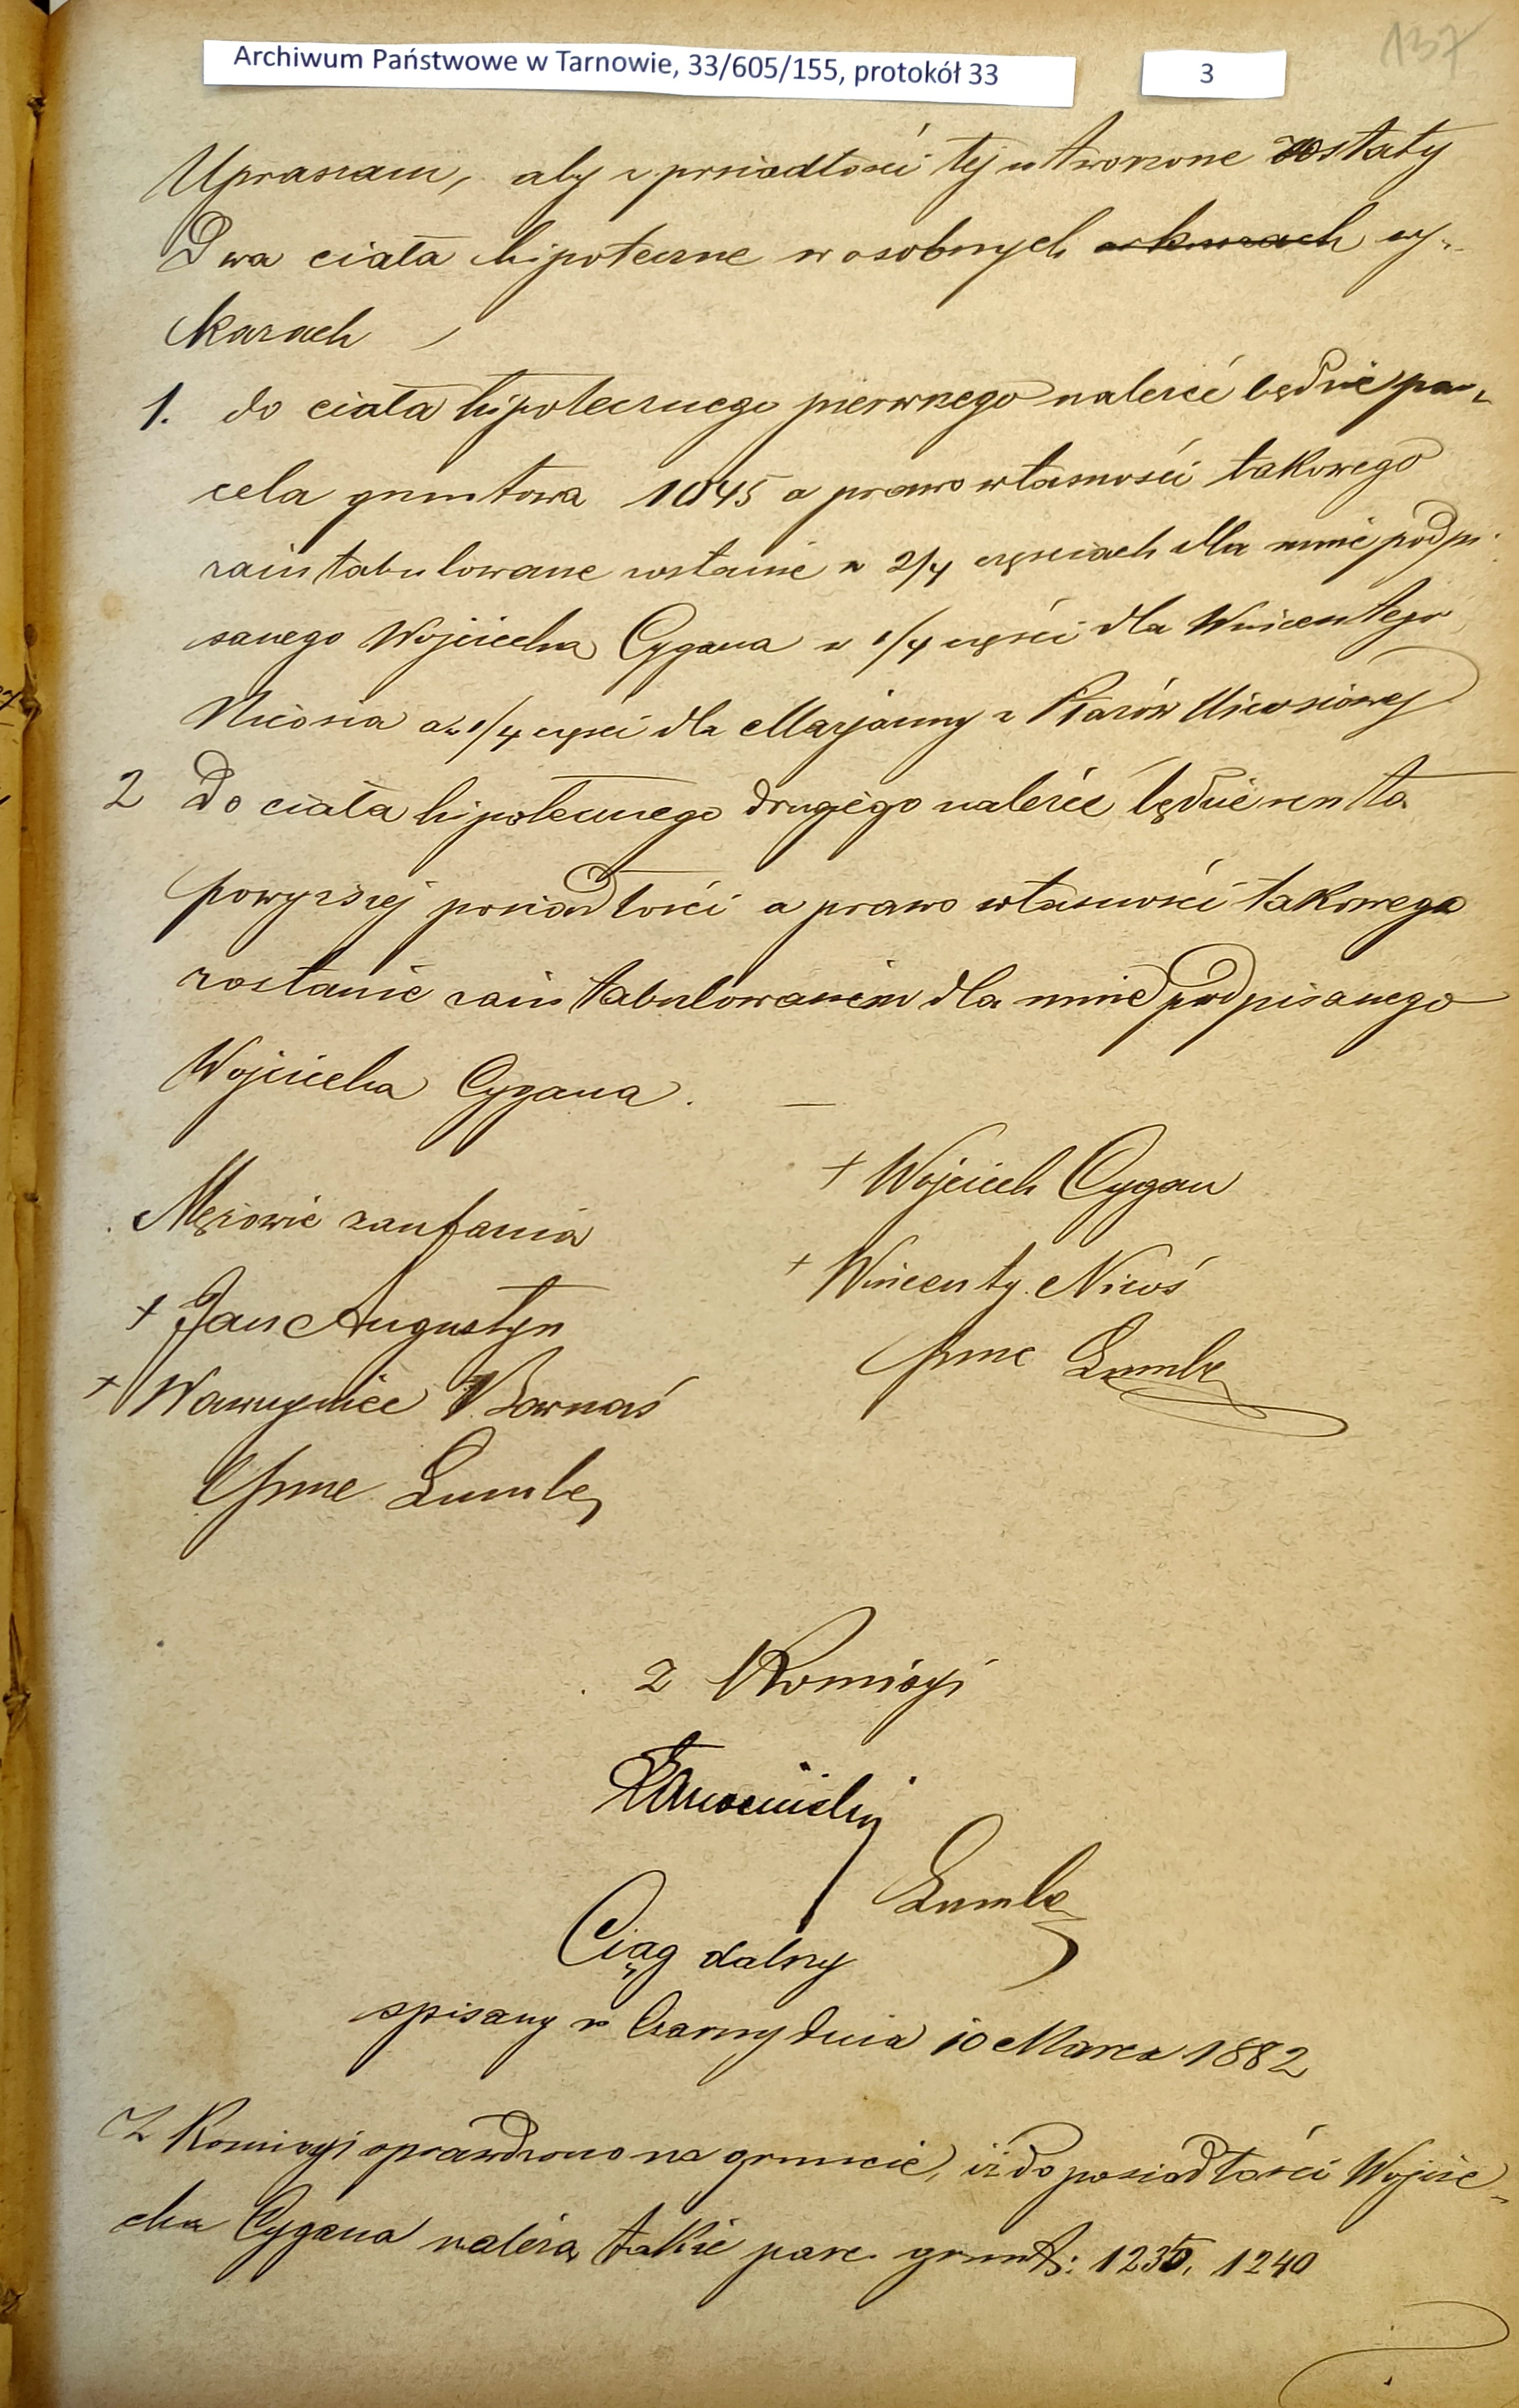 137
Archiwum Państwowe w Tarnowie, 33/605/155, protokół 33
3
Upraszam, aby z posiadłości tej utworzone zostały
Dwa ciała hipoteczne w osobnych arkuszach wy-
kazach
1. do ciała hipotecznego pierwszego należeć będzie par-
cela gruntowa 1045 a prawo własności takowego
zaintabulowane zostanie w 2/4 częściach dla mnie podpi-
sanego Wojciecha Cygana w 1/4 części dla Wincentego
Nicosia a w 1/4 części dla Maryanny z Ptarów Nicosiowej
2 Do ciała hipotecznego drugiego należeć będzie reszta
powyższej posiadłości a prawo własności takowego
zostanie zaintabulowanem dla mnie podpisanego
Wojciecha Cygana. —
+ Wojciech Cygan
Mężowie zaufania
+ Wincenty Nicoś
+ Jan Augustyn
+ Wawrzyniec Barnaś
Z Komisyi
Ciąg dalszy
spisany w Czarny dnia 10 Marca 1882
Z Komisyi sprawdzono na gruncie, iż do posiadłości Wojcie-
cha Cygana należą także parc. grunt: 1235, 1240